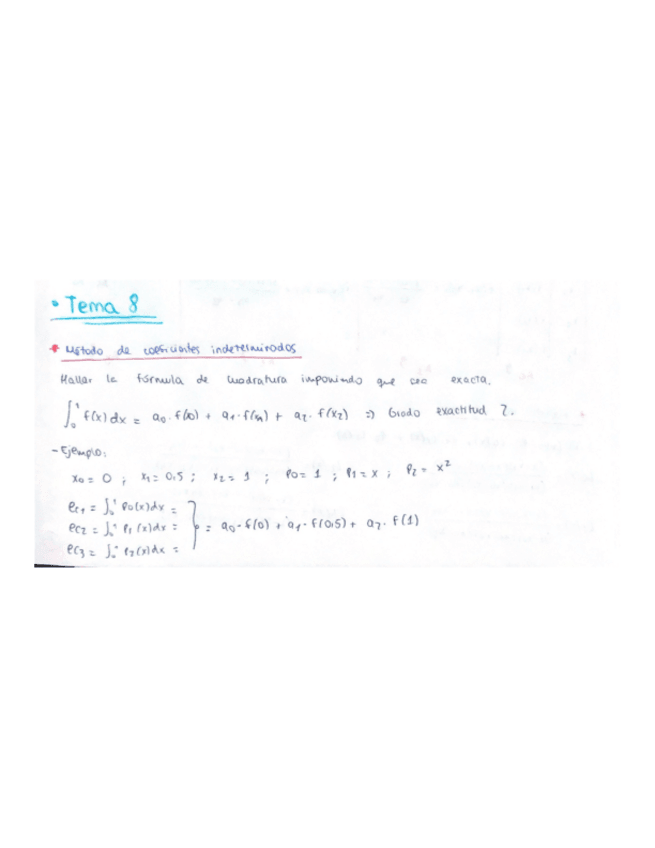 • Tema 8
* Método de coeficientes indeterminados
Hallar la fórmula de cuadratura imponiendo que sea exacta.
∫₀¹ f(x) dx = a₀·f(x₀) + a₁·f(x₁) + a₂·f(x₂) => Grado exactitud 2.
- Ejemplo:
x₀ = 0 ; x₁ = 0,5 ; x₂ = 1 ; P₀ = 1 ; P₁ = x ; P₂ = x²
ec₁ = ∫₀¹ P₀(x) dx =
ec₂ = ∫₀¹ P₁(x) dx = } = a₀·f(0) + a₁·f(0,5) + a₂·f(1)
ec₃ = ∫₀¹ P₂(x) dx =